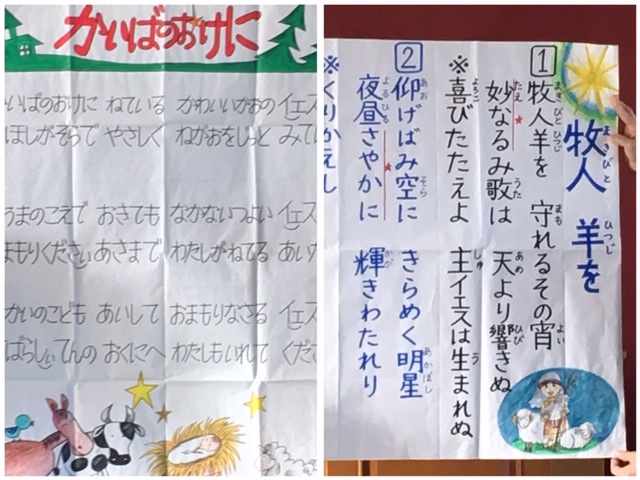 かいばのおけに
いばのおけに ねている かわいいかおの イエス
ほしがそらで やさしく ねがおをじっと みてい
うまのこえで おさても なかないつよい イエス
まもりください あさまで わたしがねてる あい
かいのこども あいして おまもりなさる イエス
ばらしいてんの おくにへ わたしもいれて くださ
牧人 羊を
まきびと ひつじ
1 牧人羊を 守れるその宵
まきびと ひつじ まも よい
妙なるみ歌は 天より響きぬ
たえ うた あめ ひび
※喜びたたえよ 主イエスは生まれぬ
よろこ しゅ う
2 仰げばみ空に きらめく明星
あお そら あかぼし
夜昼さやかに 輝きわたれり
よるひる かが
※くりかえし